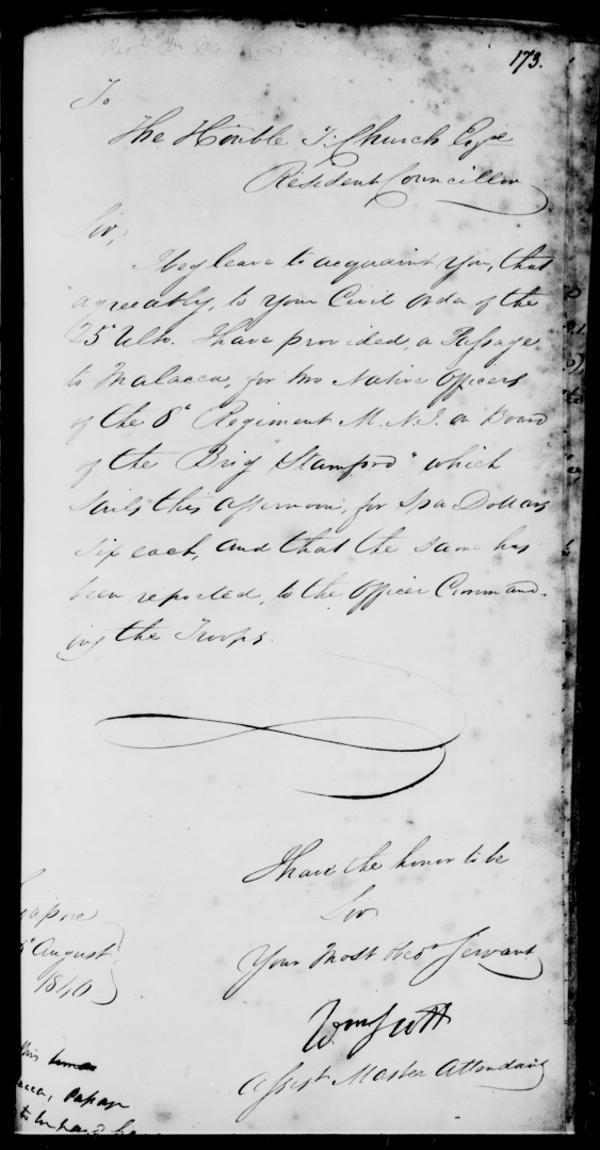 173.
To
The Honble T. Church Esqe
Resident Councillor
Sir,
I beg leave to acquaint you, that
agreeably, to your Civil order of the
25 Ulto. I have provided, a Passage
to Malacca, for two Native Officers
of the 8th Regiment M. N. I. on Board
of the Brig "Stamford" which
sails this afternoon, for Spa Dollars
six each, and that the same has
been reported, to the Officer Command-
ing the Troops.
I have the honor to be
Sir
Your Most Obedt Servant
apore
August
1840
Wm Scott
Assist Master Attendant
this
acca, Passage
to be